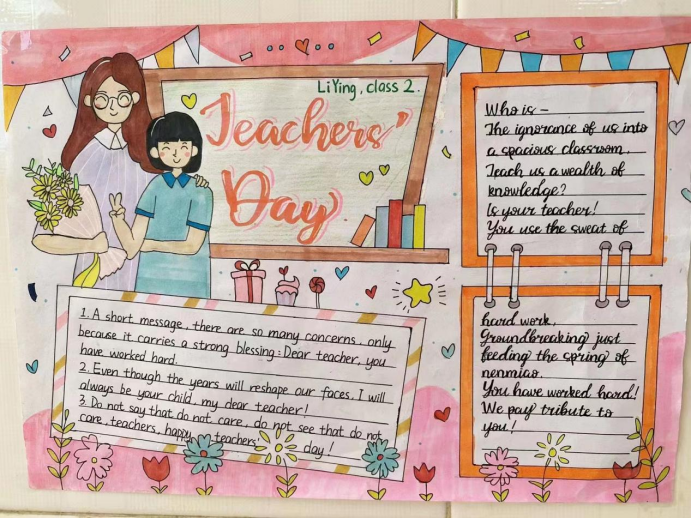 LiYing, class 2.
Teachers'
Day
1. A short message, there are so many concerns, only
because it carries a strong blessing: Dear teacher, you
have worked hard.
2. Even though the years will reshape our faces, I will
always be your child, my dear teacher!
3. Do not say that do not care, do not see that do not
care, teachers, happy teachers' day!
Who is -
The ignorance of us into
a spacious classroom,
Teach us a wealth of
knowledge?
Is your teacher!
You use the sweat of
hard work,
Groundbreaking just
feeding the spring of
nenmiao.
You have worked hard!
We pay tribute to
you!